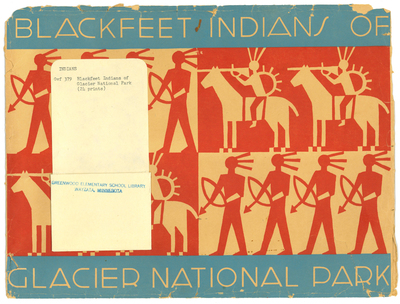 BLACKFEET INDIANS OF
INDIANS
Blackfeet Indians of
Glacier National Park
(24 prints)
GREENWOOD ELEMENTARY SCHOOL LIBRARY
WAYZATA, MINNESOTA
GLACIER NATIONAL PARK